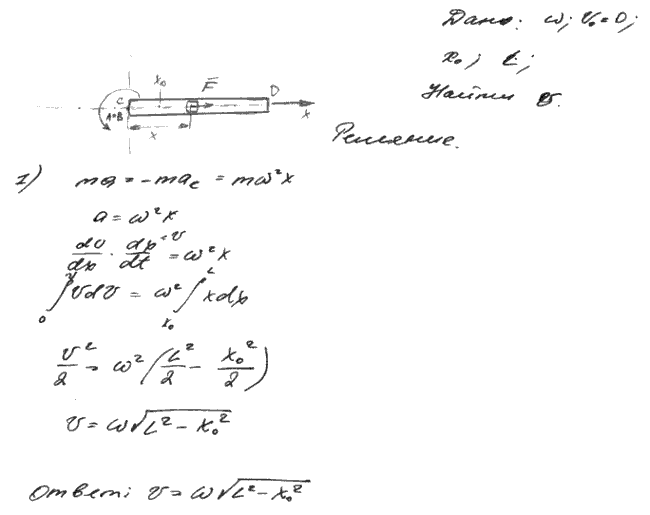 Дано: ω; v₀=0;
x₀; L;
Найти v.
Решение.
C x₀ F̄ D
A≡B
x x
1) ma = -maₑ = mω²x
a = ω²x
dv/dx · dx/dt = ω²x
=v
∫₀^v vdv = ω² ∫_{x₀}^L xdx
v²/2 = ω² (L²/2 - x₀²/2)
v = ω√(L² - x₀²)
Ответ: v = ω√(L² - x₀²)